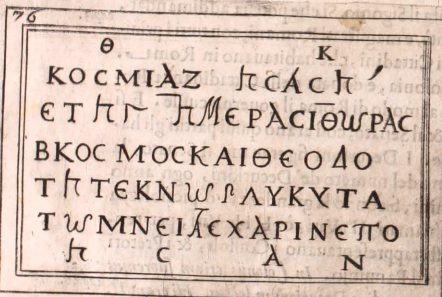 76
Θ Κ
ΚΟCΜΙΑΖ ΗCΑCΗ ʹ
ΕΤΗΓ ΗΜΕΡΑCΙΘωΡΑC
ΒΚΟCΜΟCΚΑΙΘΕΟΔΟ
ΤΗΤΕΚΝωΓΛΥΚΥΤΑ
ΤωΜΝΕΙΗΕΧΑΡΙΝΕΠΟ
Η C Α Ν